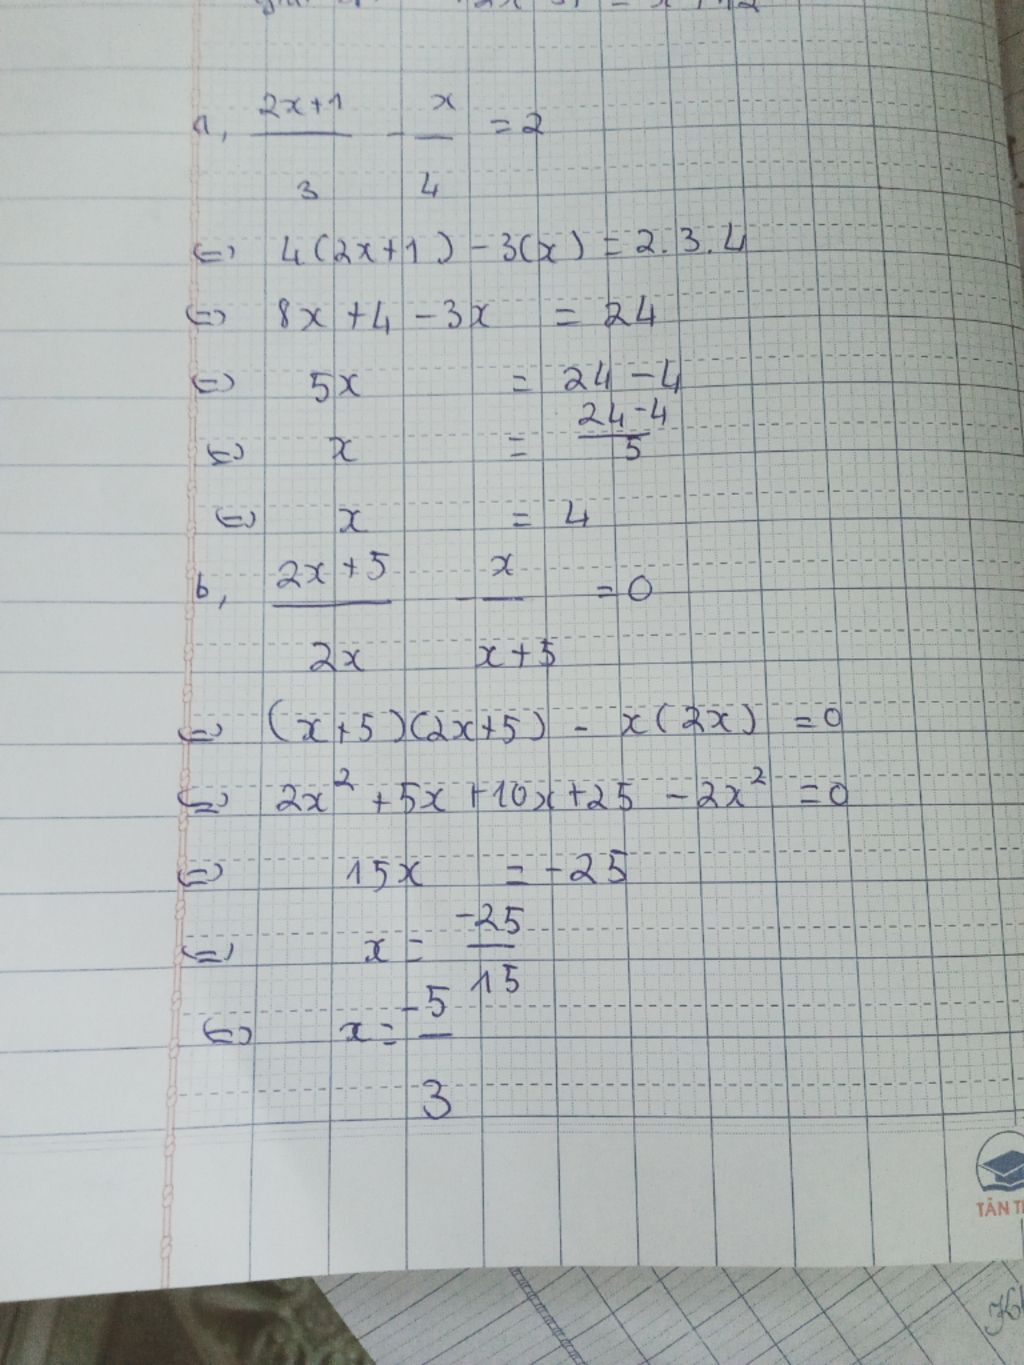 a, (2x+1)/3 - x/4 = 2
(=) 4(2x+1) - 3(x) = 2.3.4
(=) 8x + 4 - 3x = 24
(=) 5x = 24 - 4
(=) x = (24-4)/5
(=) x = 4
b, (2x+5)/2x - x/(x+5) = 0
(=) (x+5)(2x+5) - x(2x) = 0
(=) 2x² + 5x + 10x + 25 - 2x² = 0
(=) 15x = -25
(=) x = -25/15
(=) x = -5/3
TÂN